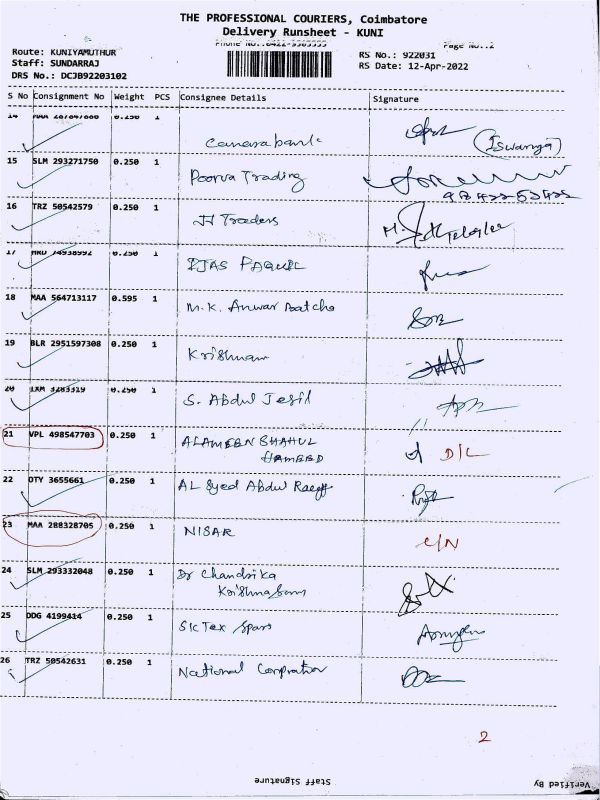 THE PROFESSIONAL COURIERS, Coimbatore
Delivery Runsheet - KUNI
Page No.:2
Route: KUNIYAMUTHUR
Staff: SUNDARRAJ
DRS No.: DCJB92203102
RS No.: 922031
RS Date: 12-Apr-2022
S No Consignment No Weight PCS Consignee Details Signature
14 MAA 0.250 1 Canara bank (Iswarya)
15 SLM 293271750 0.250 1 Poorva Trading
16 TRZ 50542579 0.250 1 JJ Traders
17 74938992 0.250 1
18 MAA 564713117 0.595 1 M.K. Anwar Batcha
19 BLR 2951597308 0.250 1 Krishnan
20 3283319 0.250 1 S. Abdul Jesil
21 VPL 498547703 0.250 1 ALAMEEN SHAHUL D/L
HAMEED
22 OTY 3655661 0.250 1 AL Syed Abdul
23 MAA 288328705 0.250 1 NISAR C/N
24 SLM 293332048 0.250 1 Dr Chandrika
25 DDG 4199414 0.250 1 Sk Tex
26 TRZ 50542631 0.250 1 National Corpration
2
Staff Signature
Verified By